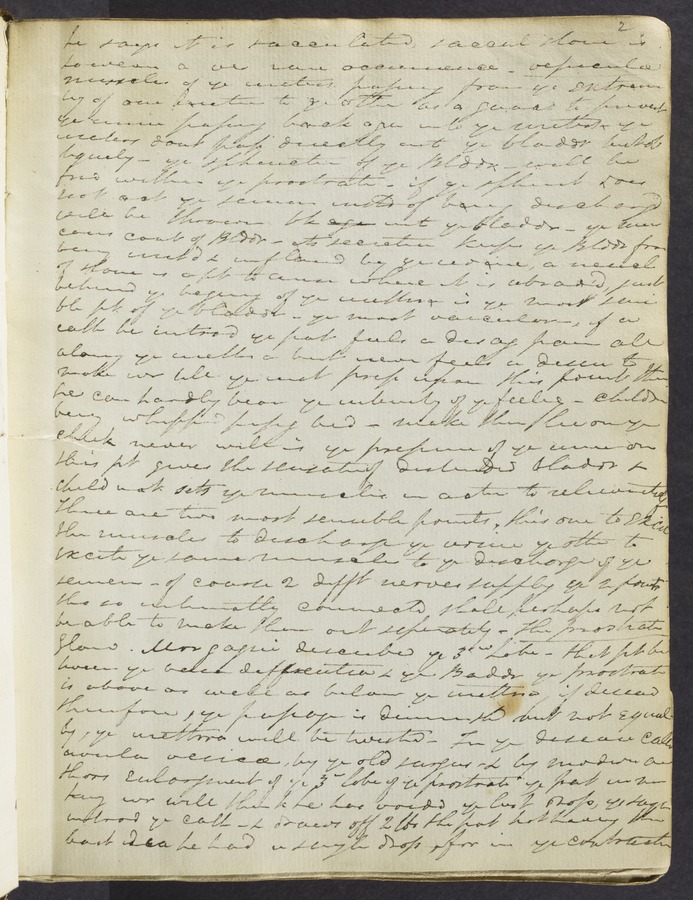 2
he says it is sacculated, saccul stone is
however a very rare occurrence
muscles of ye ureters passing from ye extrem
ity of one ureter to ye other as a guard to prevent
ye urine passing back again into ye ureters ye
ureters dont pass directly into ye bladdr but ob
liquely - ye sphincter of ye Bladdr will be
find within ye prostrate - if ye sphinct does
not act ye semen instd of being dischargd
will be thrown into ye bladdr - ye
cous coat of Bladdr - its secretion keeps ye Bladdr from
being irritd & inflamd by ye urine, a
of stone is apt to where it is abraded, just
behind ye beging of ye urethra is ye most sensi
ble pt. of ye bladdr - ye most vascular, if a
cath be introd ye pat feels a disag pain all
along ye urethra but never feels a desire to
make wr till ye inst press upon this point then
he can hardly bear ye intensity of ye feeling - children
being whipped pissg bed - make them lie on ye
never will is ye pressure of ye urine on
this pt gives the sensatn of distended bladdr &
child sets ye muscles in action to relieve itself
there are two most sensible points, this one to excite
the muscles to discharge ye urine ye other to
excite ye same muscles to ye discharge of ye
semen - of course 2 difft nerves supply ye 2 points
tho so intimatly connected shall perhaps not
be able to make them out seperately - The prostrate
Gland. Morgagni described ye 3rd Lobe - that pt be
tween ye vasa defferentia & ye Bladdr ye prostrate
is above as well as below ye urethra, if diseasd
therefore, ye passage is diminishd but not equal
ly, ye urethra will be twisted - In ye disease calld
uvula vesicæ, by ye old surgns & by modern au
thors Enlargment of ye 3rd lobe of ye prostrate ye pat in ma
king wr will think he has voidd ye last drop, ye surgn
introd ye cath - & draws off 2 lbs the pat not having the
least idea he had a single drop, for in ye contraction